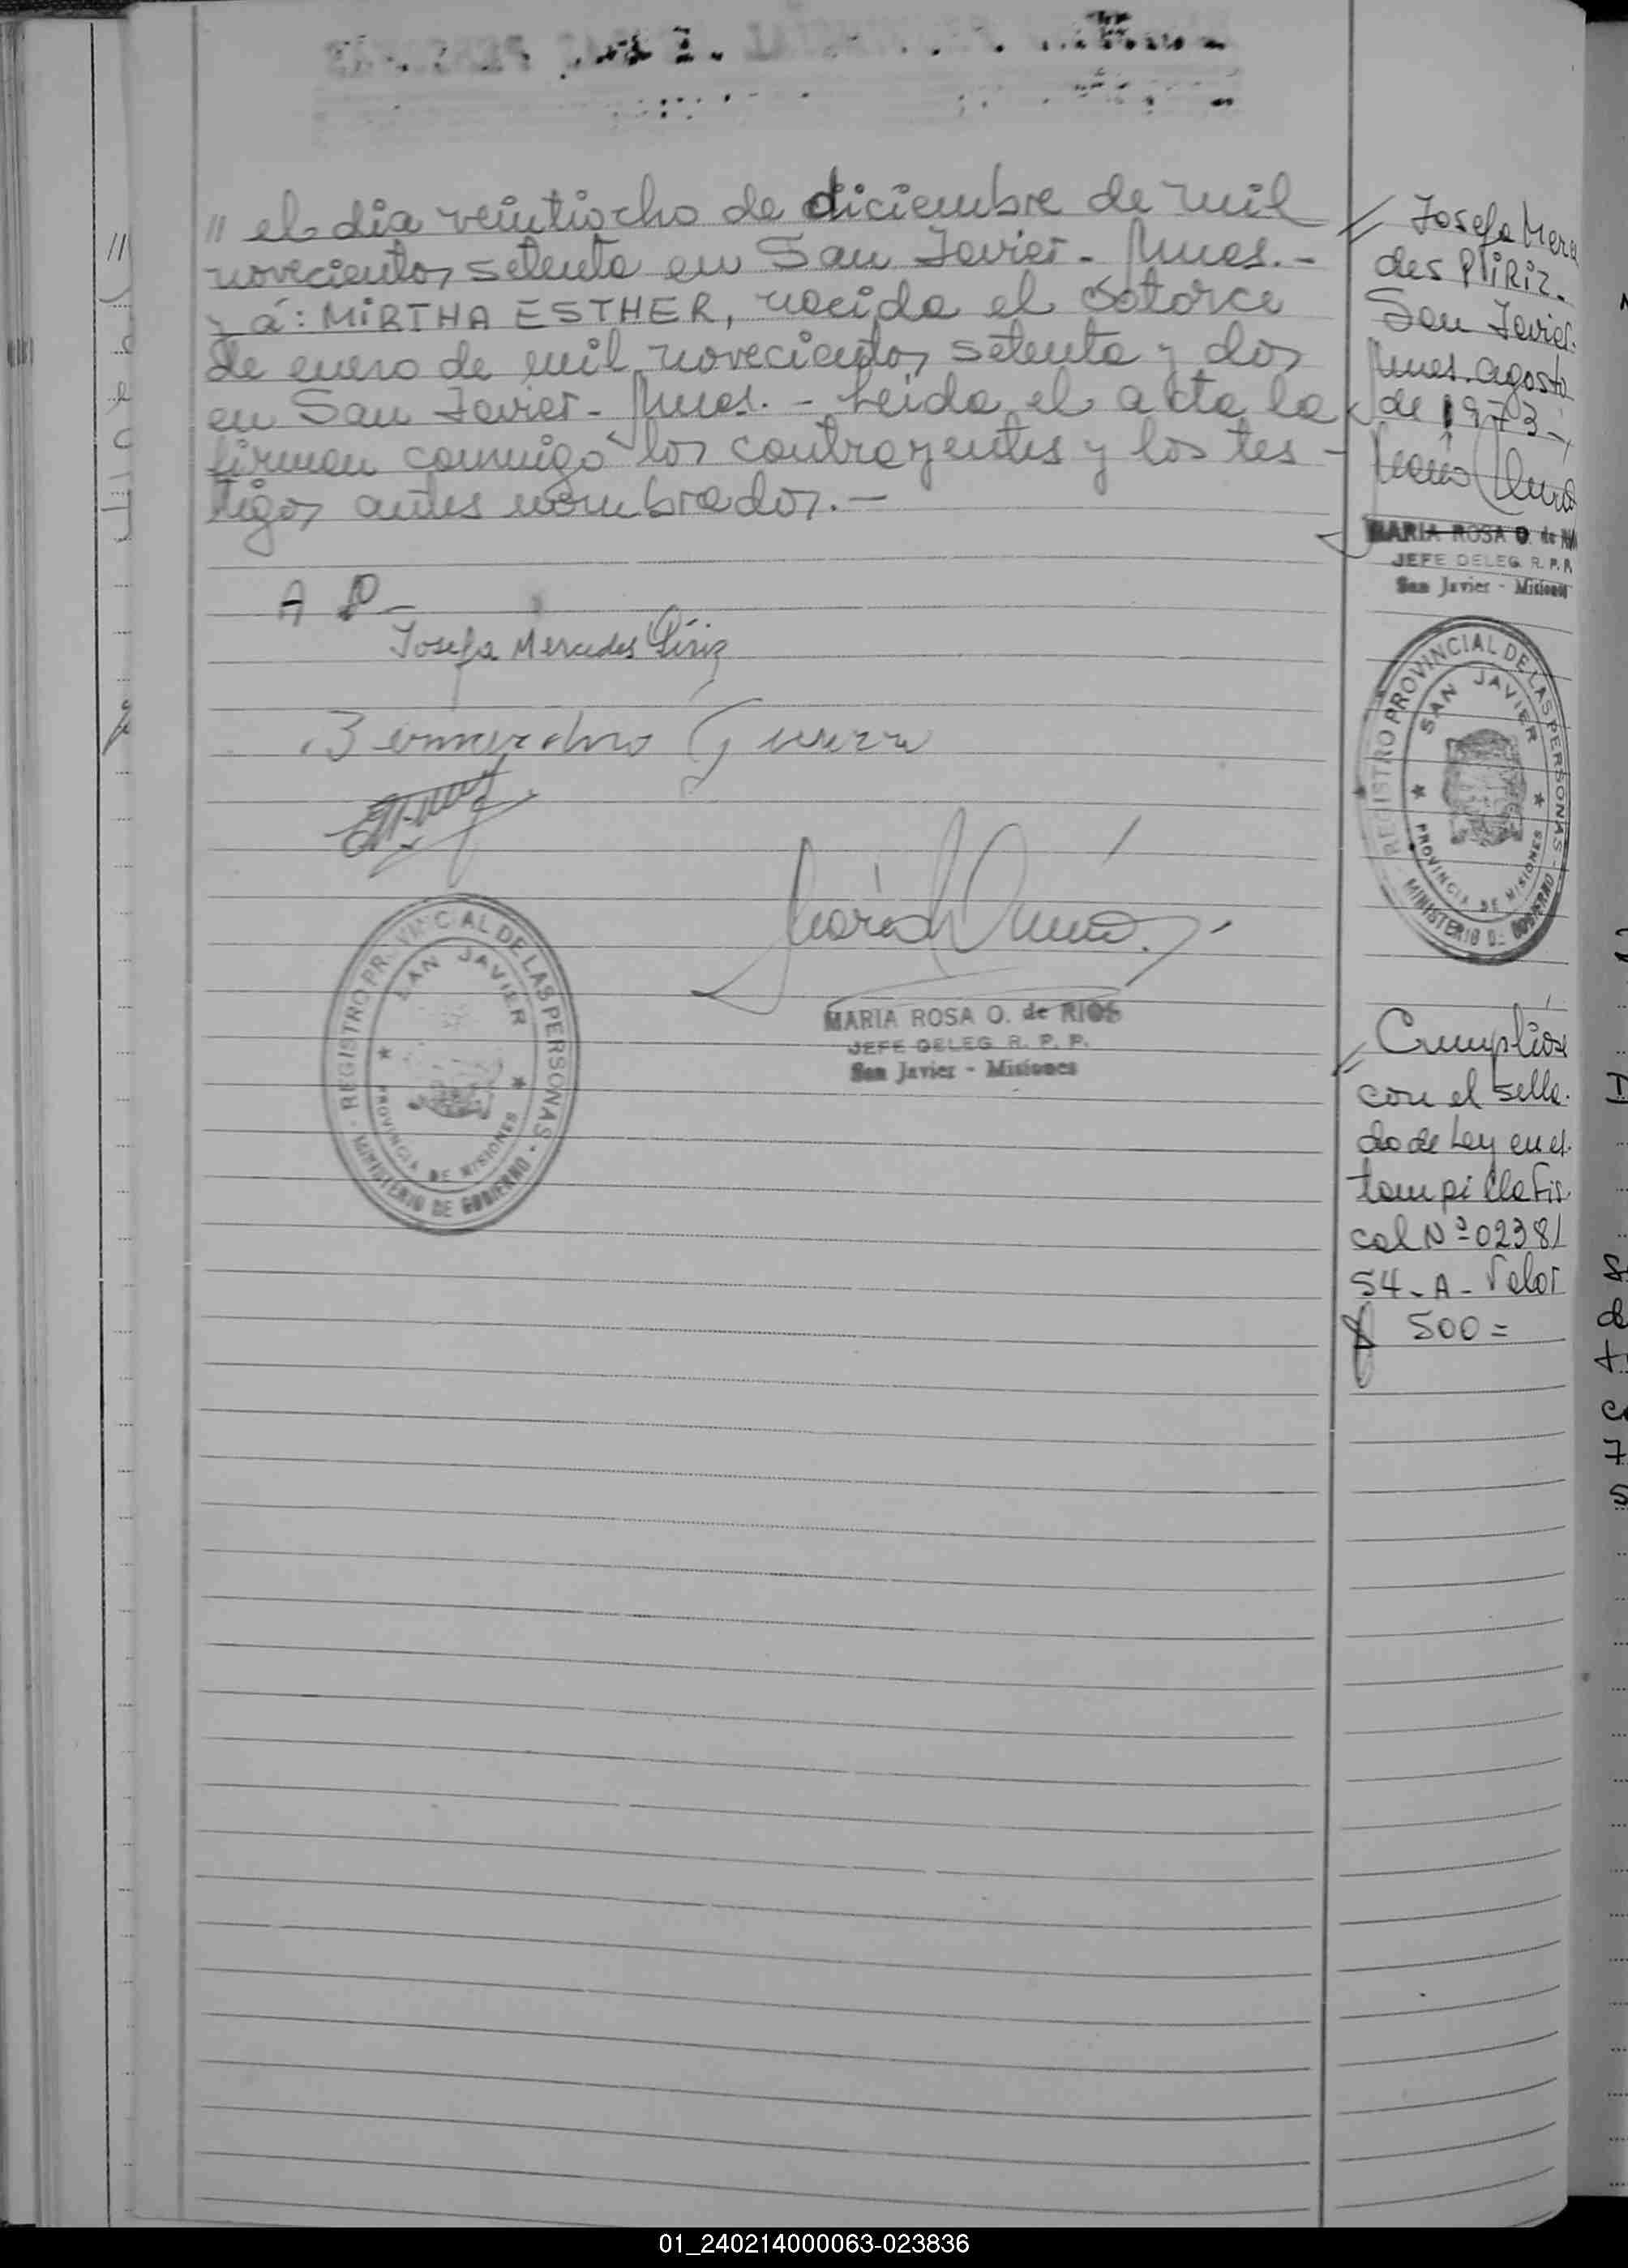 " el dia veintiocho de diciembre de mil
novecientos setenta en San Javier - Mnes. -
y á: MIRTHA ESTHER, nacida el catorce
de enero de mil novecientos setenta y dos
en San Javier - Mnes. - Leida el acta la
firman conmigo los contrayentes y los tes -
tigos antes nombrados. -
A P -
Josefa Mercedes Piriz
Bernardino Guerra
MARIA ROSA O. de RIOS
JEFE DELEG. R. P. P.
San Javier - Misiones
REGISTRO PROVINCIAL DE LAS PERSONAS -
MINISTERIO DE GOBIERNO -
SAN JAVIER
PROVINCIA DE MISIONES
// Josefa Merce
des PIRIZ -
San Javier -
Mnes. agosto
de 1973 -
MARIA ROSA O. de
JEFE DELEG. R. P. P.
San Javier - Misiones
REGISTRO PROVINCIAL DE LAS PERSONAS -
MINISTERIO DE GOBIERNO
SAN JAVIER
PROVINCIA DE MISIONES
// Cumplióse
con el sella-
do de Ley en es-
tampilla Fis-
cal Nº 02381
54 - A - Valor
$ 500 =
01_240214000063-023836